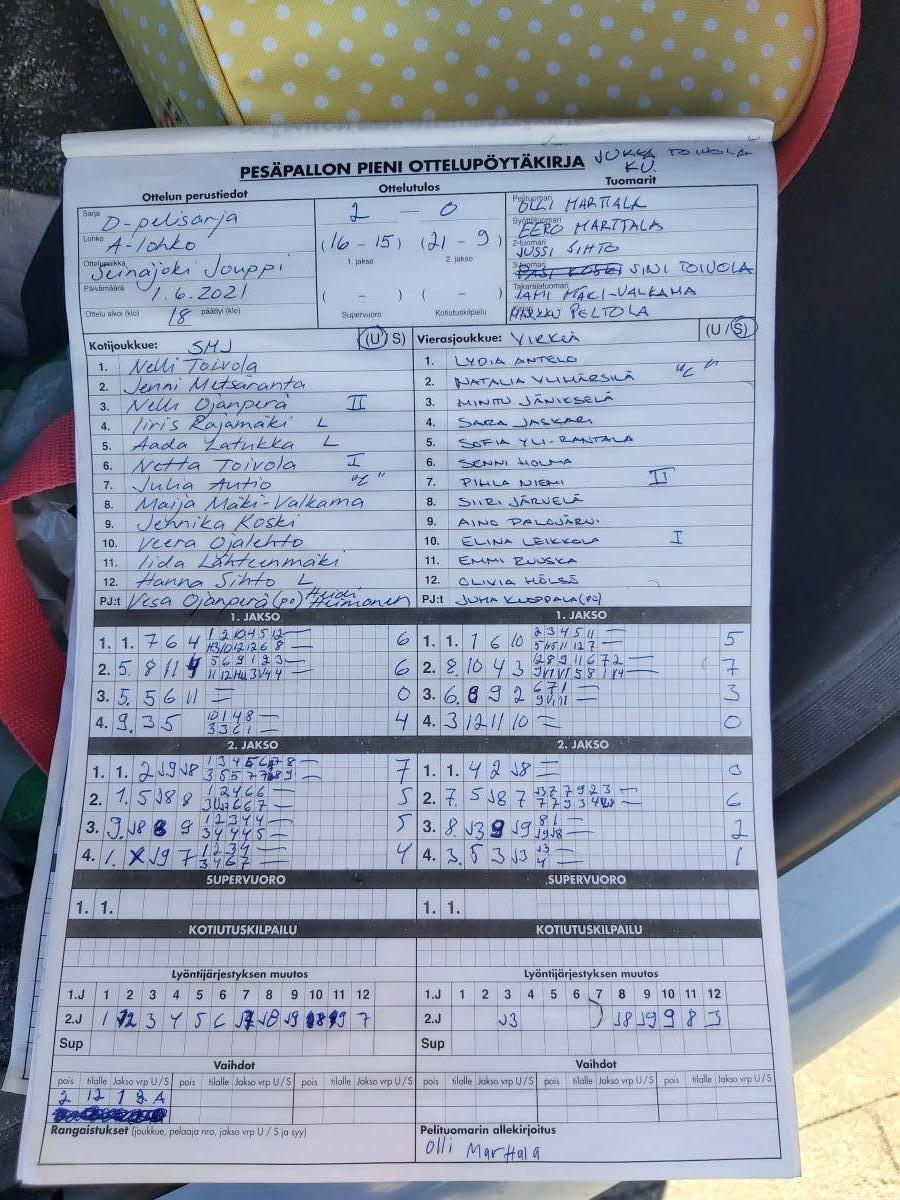 PESÄPALLON PIENI OTTELUPÖYTÄKIRJA JUKKA TOIVOLA
KU.
Ottelun perustiedot
Ottelutulos
Tuomarit
Sarja D-pelisarja
Lohko A-lohko
Ottelupaikka Seinäjoki Jouppi
Päivämäärä 1.6.2021
Ottelu alkoi (klo) 18 päättyi (klo)
2 - 0
(16 - 15) (21 - 9)
1. jakso 2. jakso
( - ) ( - )
Supervuoro Kotiutuskilpailu
Pelituomari OLLI MARTTALA
Syöttötuomari EERO MARTTALA
2-tuomari JUSSI SIHTO
3-tuomari SINI TOIVOLA
Takarajatuomari JAMI MÄKI-VALKAMA
MARKKU PELTOLA
Kotijoukkue: SMJ (U S)
1. Nelli Toivola
2. Jenni Metsäranta
3. Nelli Ojanperä II
4. Iiris Rajamäki L
5. Aada Latukka L
6. Netta Toivola I
7. Julia Autio "C"
8. Maija Mäki-Valkama
9. Jennika Koski
10. Veera Ojalehto
11. Iida Lähteenmäki
12. Hanna Sihto L
PJ:t Vesa Ojanperä (PO) Heidi Heimonen
Vierasjoukkue: VIRKIÄ (U / S)
1. LYDIA ANTELO
2. NATALIA YLIHÄRSILÄ "C"
3. MINTTU JÄNIKSELÄ
4. SARA JASKARI
5. SOFIA YLI-RANTALA
6. SENNI HOLMA
7. PIHLA NIEMI II
8. SIIRI JÄRVELÄ
9. AINO PALOJÄRVI
10. ELINA LEIKKOLA I
11. EMMI RUUSKA
12. OLIVIA HÖLSÖ
PJ:t JUHA KUOPPALA (PO)
1. JAKSO
1. 1. 7 6 4 6
2. 5. 8 11 4 6
3. 5. 5 6 11 0
4. 9. 3 5 4
1. JAKSO
1. 1. 1 6 10 5
2. 8. 10 4 3 7
3. 6. 8 9 2 3
4. 3 12 11 10 0
2. JAKSO
1. 1. 2 J9 J8 7
2. 1. 5 J8 8 5
3. 9. J8 8 9 5
4. 1. X J9 7 4
2. JAKSO
1. 1. 4 2 J8 0
2. 7. 5 J8 7 6
3. 8. J3 9 J9 2
4. 3. 5 3 J3 1
SUPERVUORO
1. 1.
SUPERVUORO
1. 1.
KOTIUTUSKILPAILU
KOTIUTUSKILPAILU
Lyöntijärjestyksen muutos
1.J 1 2 3 4 5 6 7 8 9 10 11 12
2.J 1 12 3 4 5 6 J7 J8 J9
Sup
Lyöntijärjestyksen muutos
1.J 1 2 3 4 5 6 7 8 9 10 11 12
2.J J3 J8 J9 9 8 3
Sup
Vaihdot
pois tilalle Jakso vrp U / S pois tilalle Jakso vrp U / S pois tilalle Jakso vrp U / S
2 12 1 2. A
Vaihdot
pois tilalle Jakso vrp U / S pois tilalle Jakso vrp U / S pois tilalle Jakso vrp U / S
Rangaistukset (joukkue, pelaaja nro, jakso vrp U / S ja syy)
Pelituomarin allekirjoitus
Olli Marttala